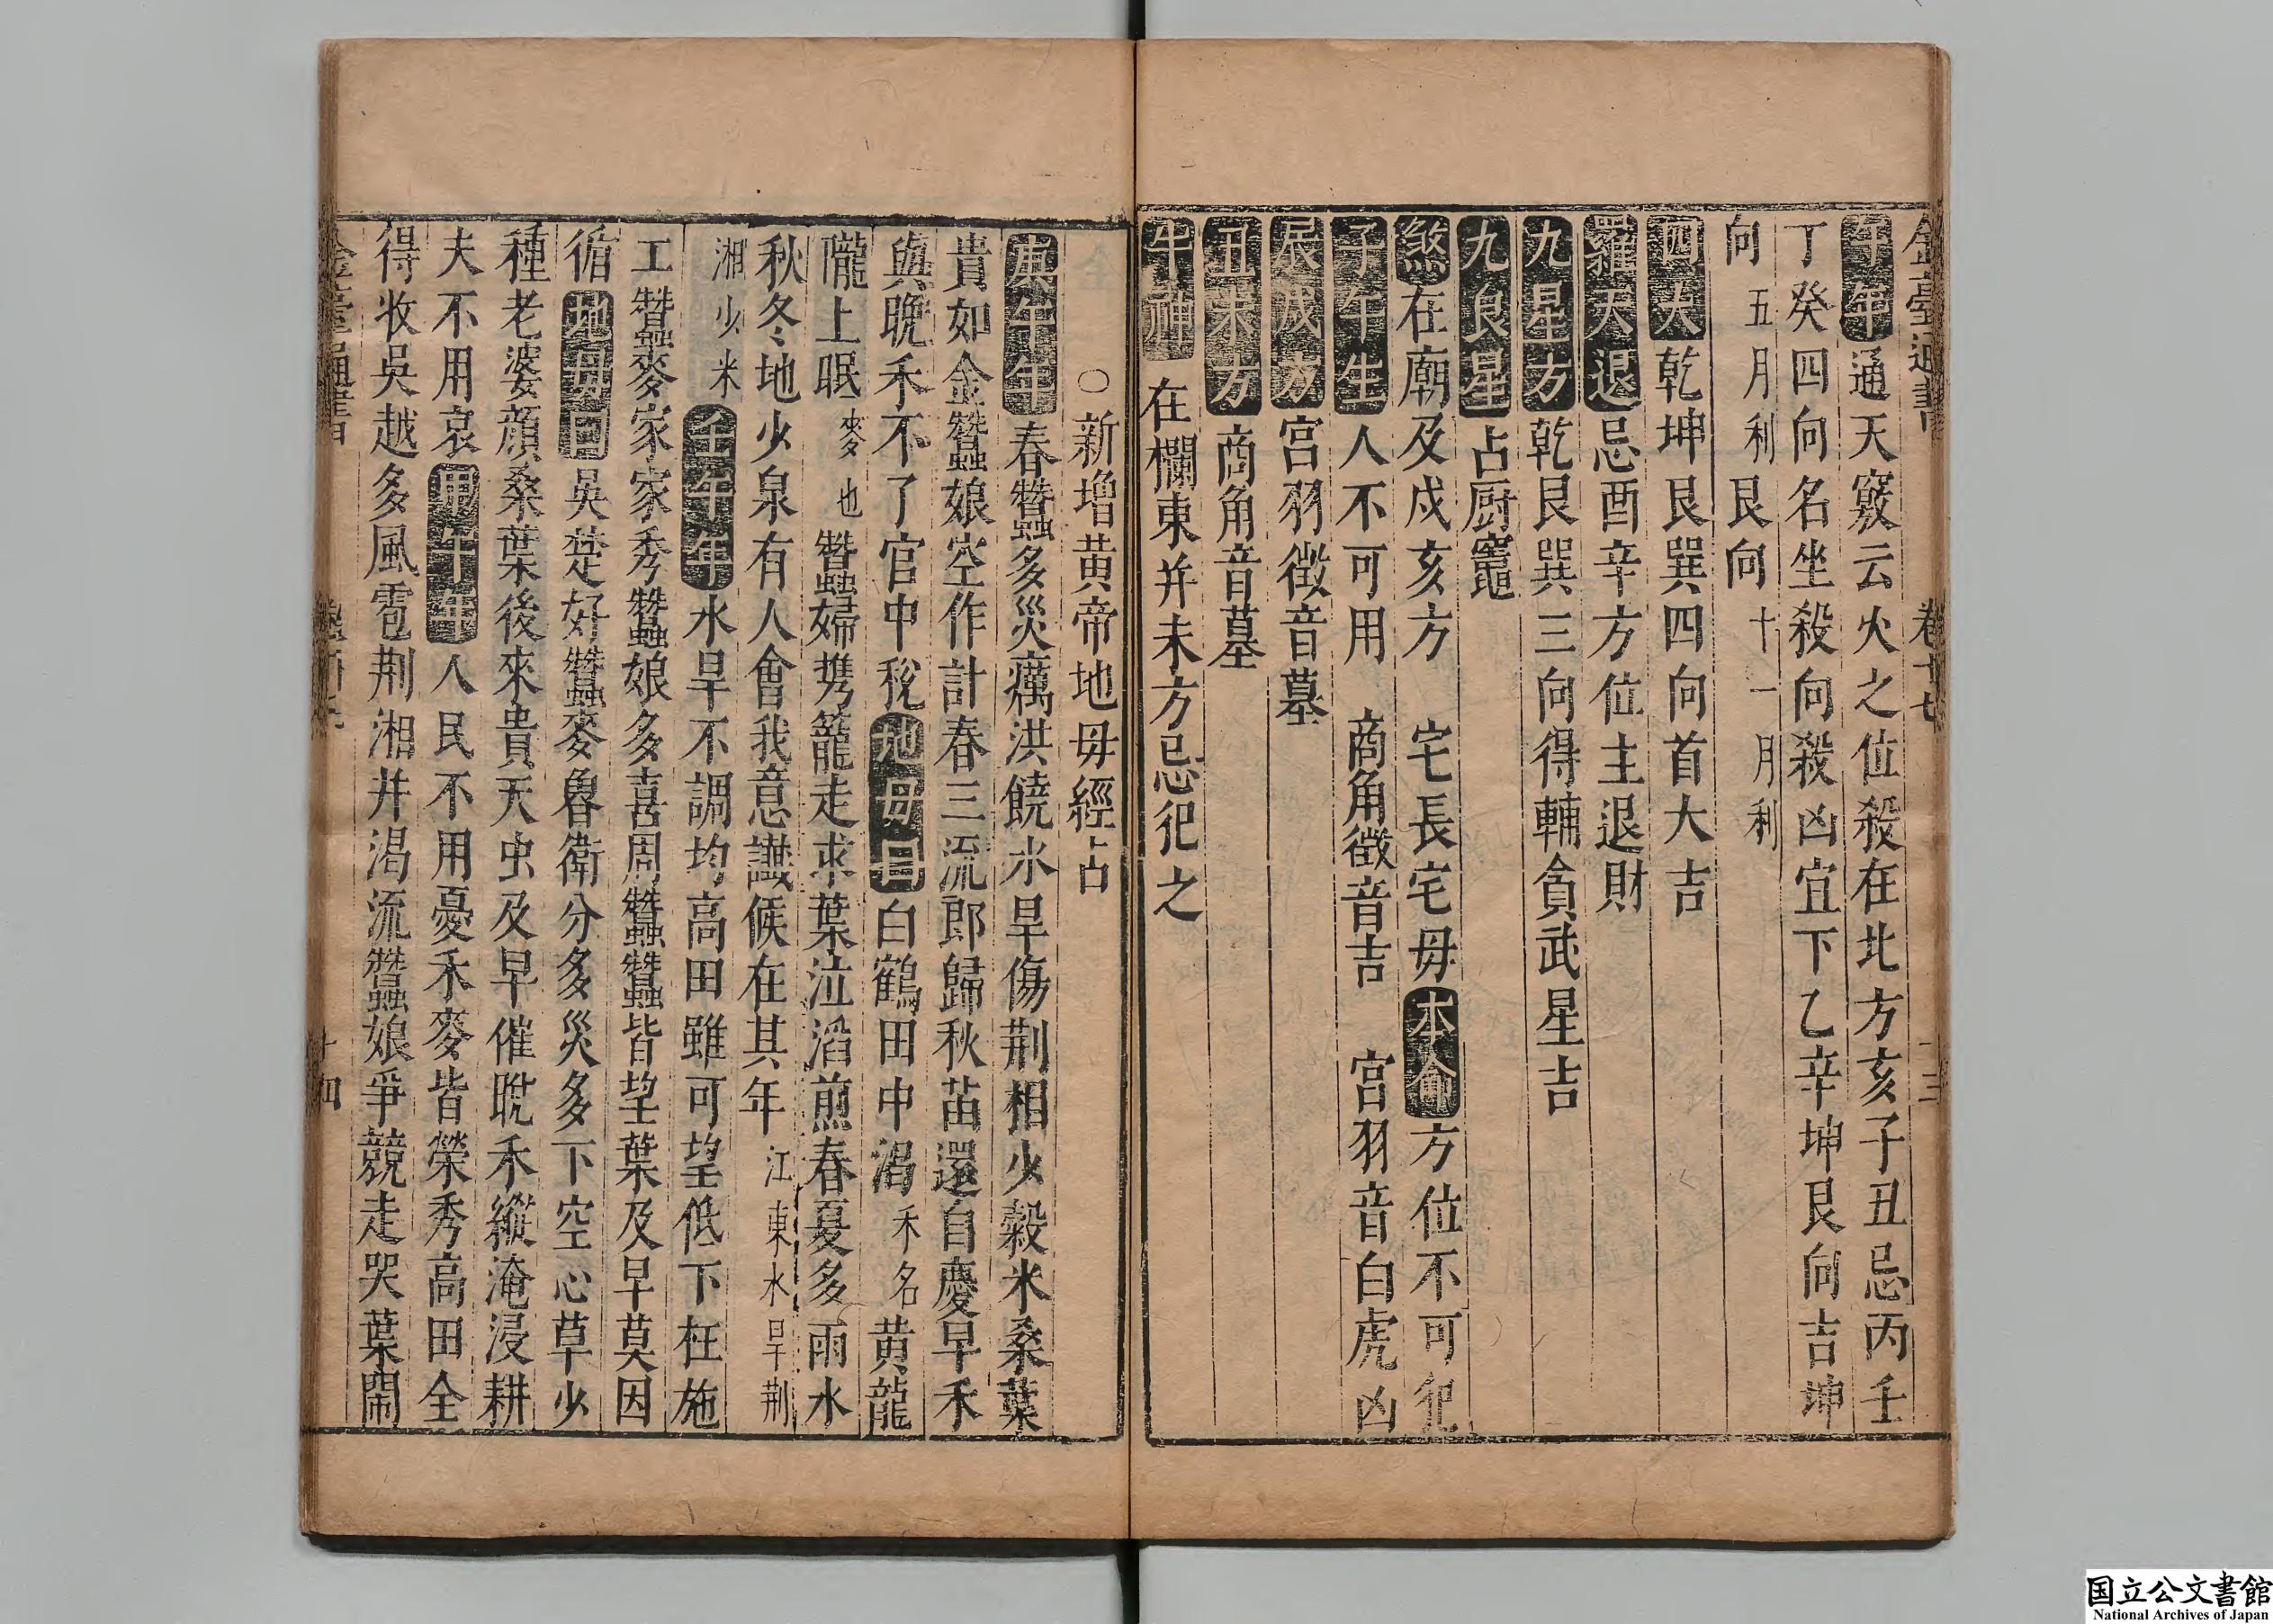 金臺通書　卷十七
午年通天竅云火之位殺在北方亥子丑忌丙壬
丁癸四向名坐殺向殺凶宜下乙辛坤艮向吉坤
向五月利艮向十一月利
四大乾坤艮巽四向首大吉
羅天退忌酉辛方位主退財
九星方乾艮巽三向得輔貪武星吉
九良星占厨竈
煞在廟及戍亥方　宅長宅毋本命方位不可犯
子午生人不可用　商角徵音吉　宮羽音白虎凶
辰戍方宮羽徵音墓
丑未方商角音墓
牛神在欄東并未方忌犯之
○新增黄帝地毋經占
庚午年春蠶多災癘洪饒水旱傷荆相少穀米桑葉
貴如金蠶娘空作計春三流郎歸秋苗還自慶早禾
與晩禾不了官中稅地毋曰白鶴田中渴禾名黄龍
隴上眠麥也蠶婦携籠走求葉泣滔煎春夏多雨水
秋冬地少泉有人會我意讖候在其年江東水旱荆
湘少米壬午年水旱不調均高田雖可望低下枉施
工蠶麥家家秀蠶娘多喜周蠶蠶皆望葉及早莫因
循地毋曰吳楚好蠶麥魯衛分多災多下空心草少
種老婆顔桑葉後來貴天虫及早催晩禾縱淹浸耕
夫不用哀甲午年人民不用憂禾麥皆榮秀高田全
得收吳越多風雹荆湘井渴流蠶娘爭競走哭葉閙
十四
国立公文書館
National Archives of Japan